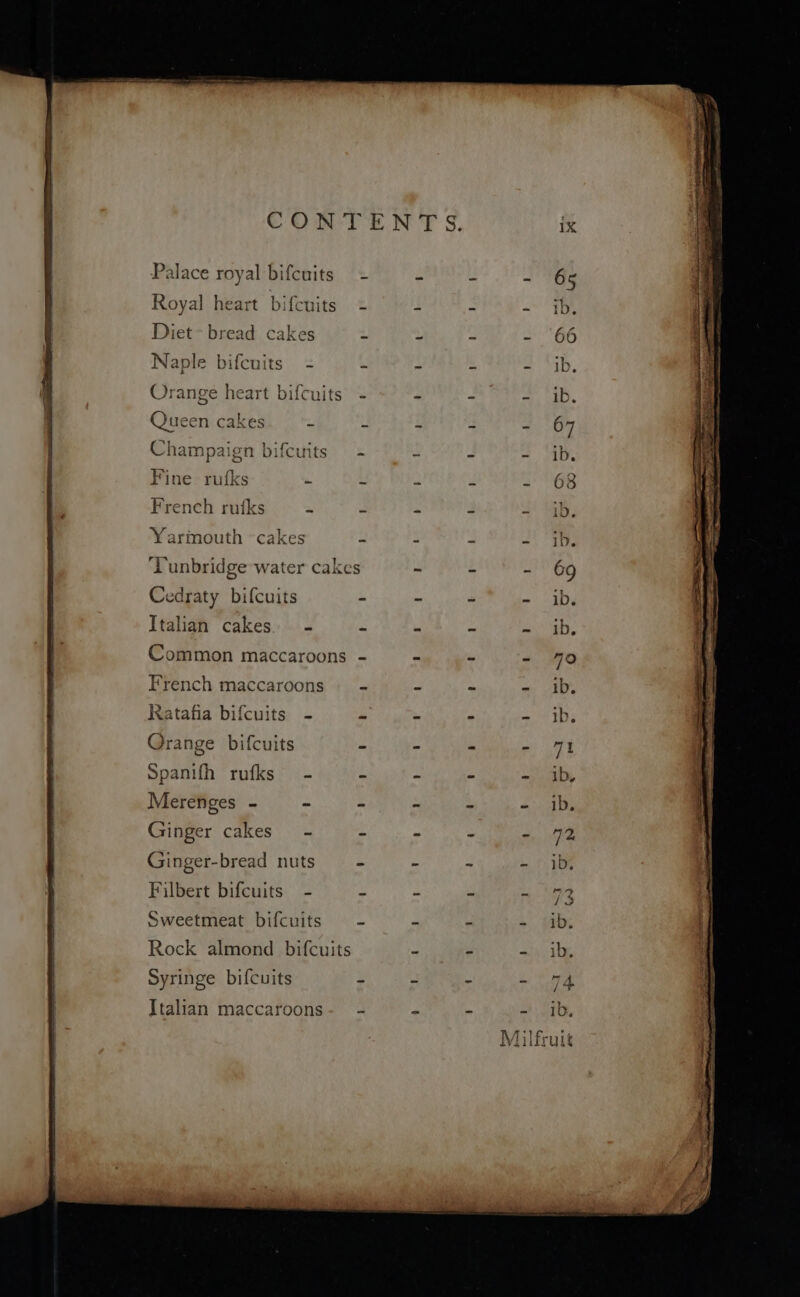 CONTENTS. ix
Palace royal bifcuits - - - - 65
Royal heart bifcuits - - - - ib.
Diet bread cakes - - - - 66
Naple bifcuits - - - - - ib.
Orange heart bifcuits - - - - ib.
Queen cakes - - - - - 67
Champaign bifcuits - - - - ib.
Fine rufks - - - - - 68
French rufks - - - - - ib.
Yarmouth cakes - - - - ib.
Tunbridge water cakes - - - 69
Cedraty bifcuits - - - - ib.
Italian cakes - - - - - ib.
Common maccaroons - - - - 70
French maccaroons - - - - ib.
Ratafia bifcuits - - - - - ib.
Orange bifcuits - - - - 71
Spanifh rufks - - - - - ib.
Merenges - - - - - - ib.
Ginger cakes - - - - - 72
Ginger-bread nuts - - - - ib.
Filbert bifcuits - - - - - 73
Sweetmeat bifcuits - - - - ib.
Rock almond bifcuits - - - ib.
Syringe bifcuits - - - - 74
Italian maccaroons - - - - ib.
Milfruit